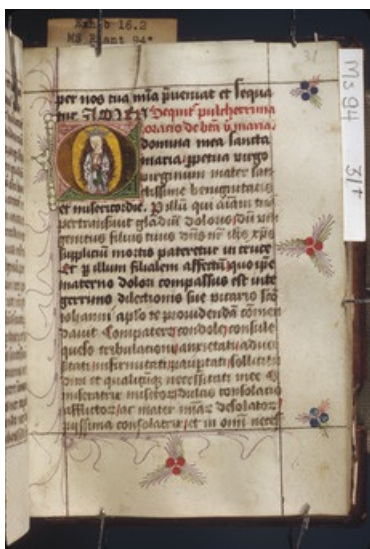 Exhib 16.2
31
Ms 94 31r
per nos tua mīa ꝑueniat et sequa
tur AMEN Sequit᷑ pulcherrima
oracio de btā v̄ maria.
domina mea sancta
maria ꝑpetua virgo
virginum mater san
ctissime benignitatis
et misericordie. P illū qui aīam tuā
pertransiuit gladiū doloris dū vni
genitus filius tuus dn̄s nr̄ ihs xp̄s
suppliciū mortis pateretur in cruce
Et ꝑ illum filialem affectū quo ip̄e
materno dolori compassus est inte
gerrimo dilectionis sue vicario scō
iohanni aplō te prouidendā cōmen
dauit Compatere condole consule
queso tribulationi anxietati aduer
sitati infirmitati paupertati sollicitu
dini et qualicūq necessitati mee O
miseratrix miserorū dulcis consolatio
afflictorꝝ et mater mīarꝝ desolatorꝝ
piissima consolatrix et in omni nece